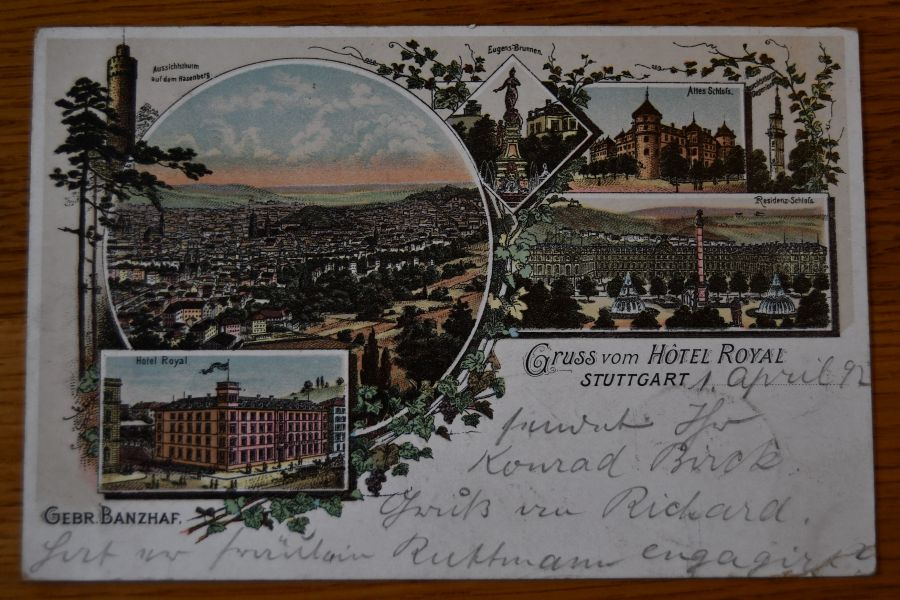 Aussichtsturm
auf dem Hasenberg.
Eugens-Brunnen.
Altes Schloß.
Residenz-Schloß.
Hotel Royal
Gruss vom Hôtel Royal
Stuttgart
1. April 92
sendet Ihr
Konrad Birck.
Gruß von Richard.
Gebr. Banzhaf.
Hat er Fräulein Ruttmann engagirt?